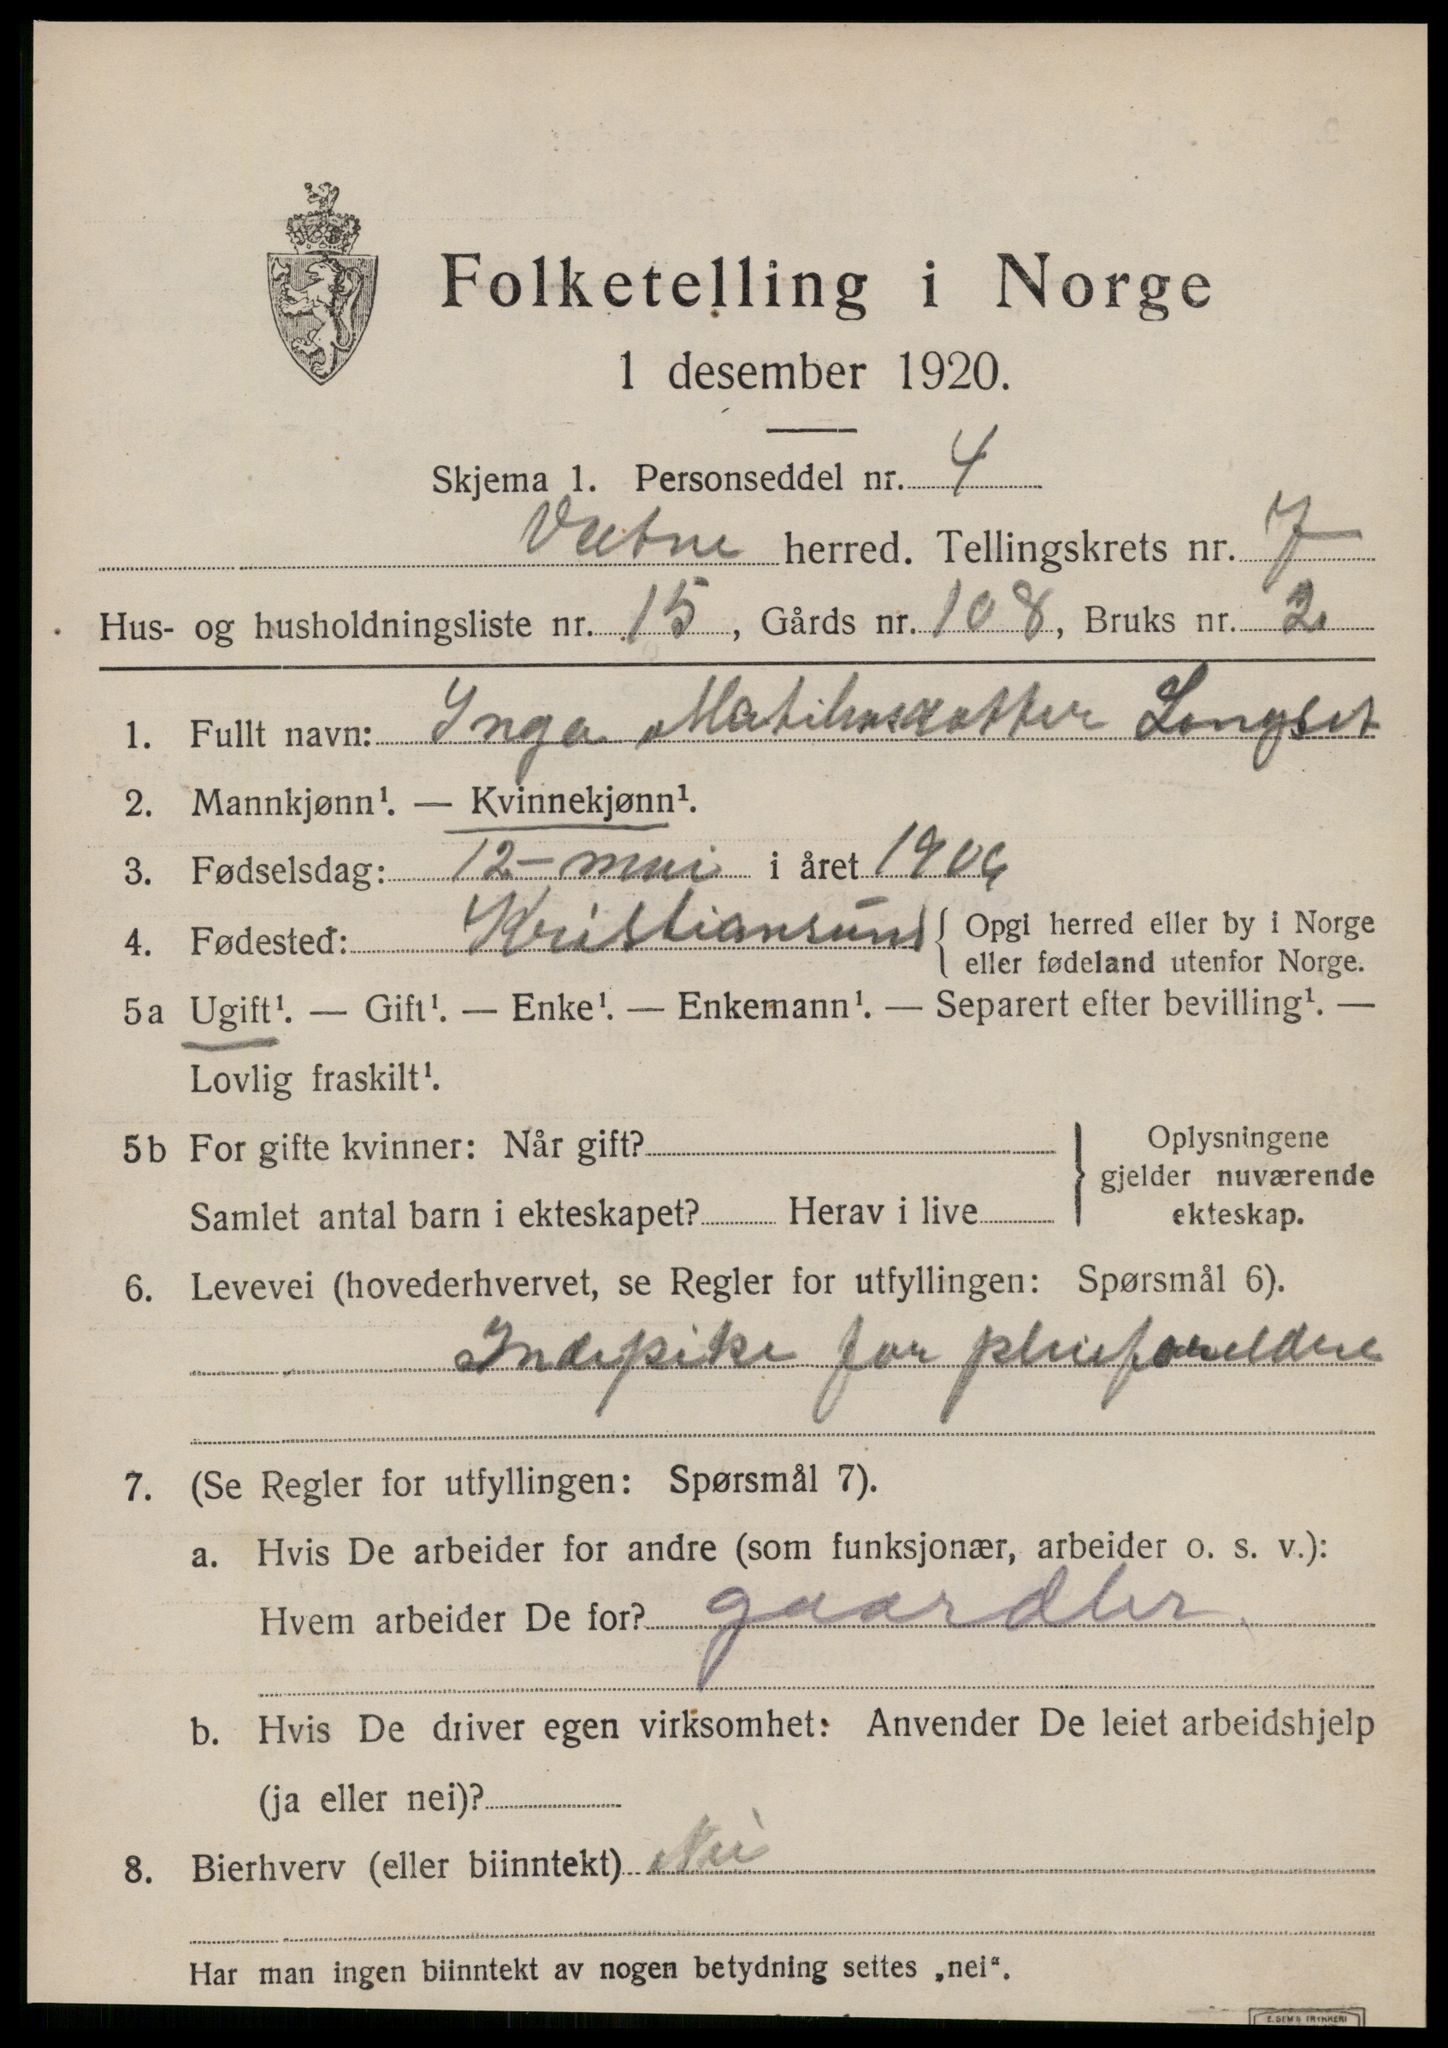 Folketelling i Norge
1 desember 1920.
Skjema 1. Personseddel nr. 4
Vatne herred. Tellingskrets nr. 7
Hus- og husholdningsliste nr. 15, Gårds nr. 108, Bruks nr. 2
1. Fullt navn: Inga Longset
2. Mannkjønn¹. — Kvinnekjønn¹.
3. Fødselsdag: 12-mai i året 1906
4. Fødested: Kristiansund { Opgi herred eller by i Norge
eller fødeland utenfor Norge.
5a Ugift¹. — Gift¹. — Enke¹. — Enkemann¹. — Separert efter bevilling¹. —
Lovlig fraskilt¹.
5b For gifte kvinner: Når gift?
Samlet antal barn i ekteskapet? Herav i live
} Oplysningene
gjelder nuværende
ekteskap.
6. Levevei (hovederhvervet, se Regler for utfyllingen: Spørsmål 6).
Indepike for pleieforeldre
7. (Se Regler for utfyllingen: Spørsmål 7).
a. Hvis De arbeider for andre (som funksjonær, arbeider o. s. v.):
Hvem arbeider De for?
b. Hvis De driver egen virksomhet: Anvender De leiet arbeidshjelp
(ja eller nei)?
8. Bierhverv (eller biinntekt) Nei
Har man ingen biinntekt av nogen betydning settes „nei“.
E. SEM'S TRYKKERI